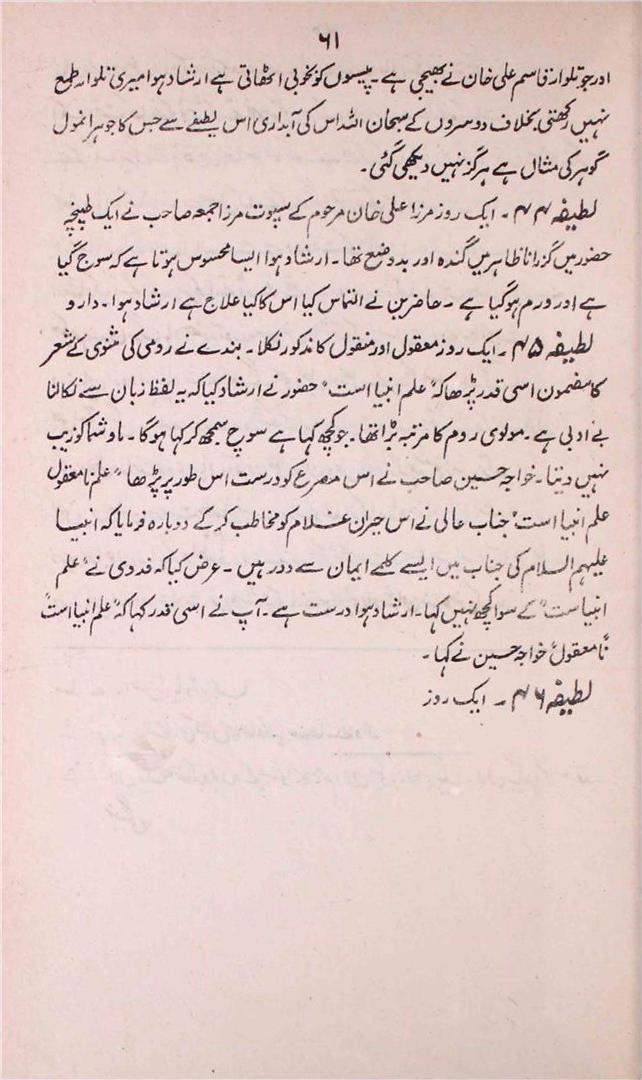 ۶۱
اور جو تلوار قاسم علی خان نے بھیجی ہے۔ پیسوں کو بخوبی اٹھاتی ہے ارشاد ہوا میری تلوار طمع
نہیں رکھتی بخلاف دوسروں کے سبحان اللہ اس کی آبداری اس لطیفے سے جس کا جوہر انمول
گوہر کی مثال ہے ہرگز نہیں دیکھی گئی۔
لطیفہ ۴۴۔ ایک روز مرزا علی خان مرحوم کے سپوت مرزا جمعہ صاحب نے ایک طپنچہ
حضور میں گزرانا ظاہر میں گندہ اور بد وضع تھا۔ ارشاد ہوا ایسا محسوس ہوتا ہے کہ سوج گیا
ہے اور ورم ہوگیا ہے ۔ حاضرین نے التماس کیا اس کا کیا علاج ہے ارشاد ہوا۔ دارو
لطیفہ ۴۵۔ ایک روز معقول اور منقول کا مذکور نکلا۔ بندے نے رومی کی مثنوی کے شعر
کا مضمون اسی قدر پڑھا کہ "علم انبیا است" حضور نے ارشاد کیا کہ یہ لفظ زبان سے نکالنا
بے ادبی ہے۔ مولوی روم کا مرتبہ بڑا تھا۔ جو کچھ کہا ہے سوچ سمجھ کر کہا ہوگا۔ ماوشما کو زیب
نہیں دیتا۔ خواجہ حسین صاحب نے اس مصرع کو درست اس طور پر پڑھا "علم نامعقول
علم انبیا است" جناب عالی نے اس حیران غلام کو مخاطب کرکے دوبارہ فرمایا کہ انبیا
علیہم السلام کی جناب میں ایسے کلمے ایمان سے دور ہیں۔ عرض کیا کہ فدوی نے "علم
انبیاست" کے سوا کچھ نہیں کہا۔ ارشاد ہوا درست ہے۔ آپ نے اسی قدر کہا کہ "علم انبیا است"
"نامعقول" خواجہ حسین نے کہا۔
لطیفہ ۴۶۔ ایک روز